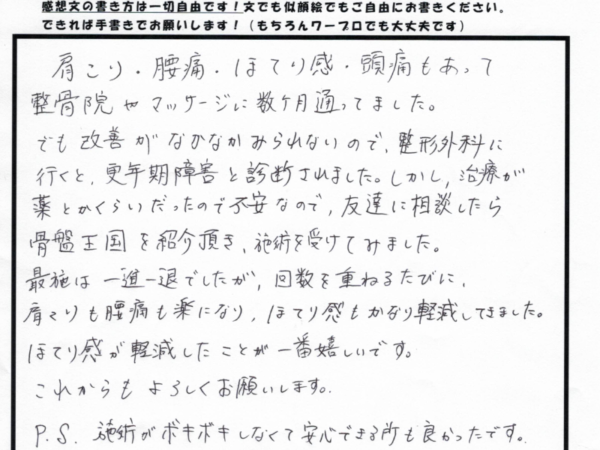 感想文の書き方は一切自由です！文でも似顔絵でもご自由にお書きください。
できれば手書きでお願いします！（もちろんワープロでも大丈夫です）
肩こり・腰痛・ほてり感・頭痛もあって
整骨院やマッサージに数ヶ月通ってました。
でも改善がなかなかみられないので、整形外科に
行くと、更年期障害と診断されました。しかし、治療が
薬とかくらいだったので不安なので、友達に相談したら
骨盤王国を紹介頂き、施術を受けてみました。
最施は一進一退でしたが、回数を重ねるたびに、
肩こりも腰痛も楽になり、ほてり感もかなり軽減してきました。
ほてり感が軽減したことが一番嬉しいです。
これからもよろしくお願いします。
P.S. 施術がボキボキしなくて安心できる所も良かったです。